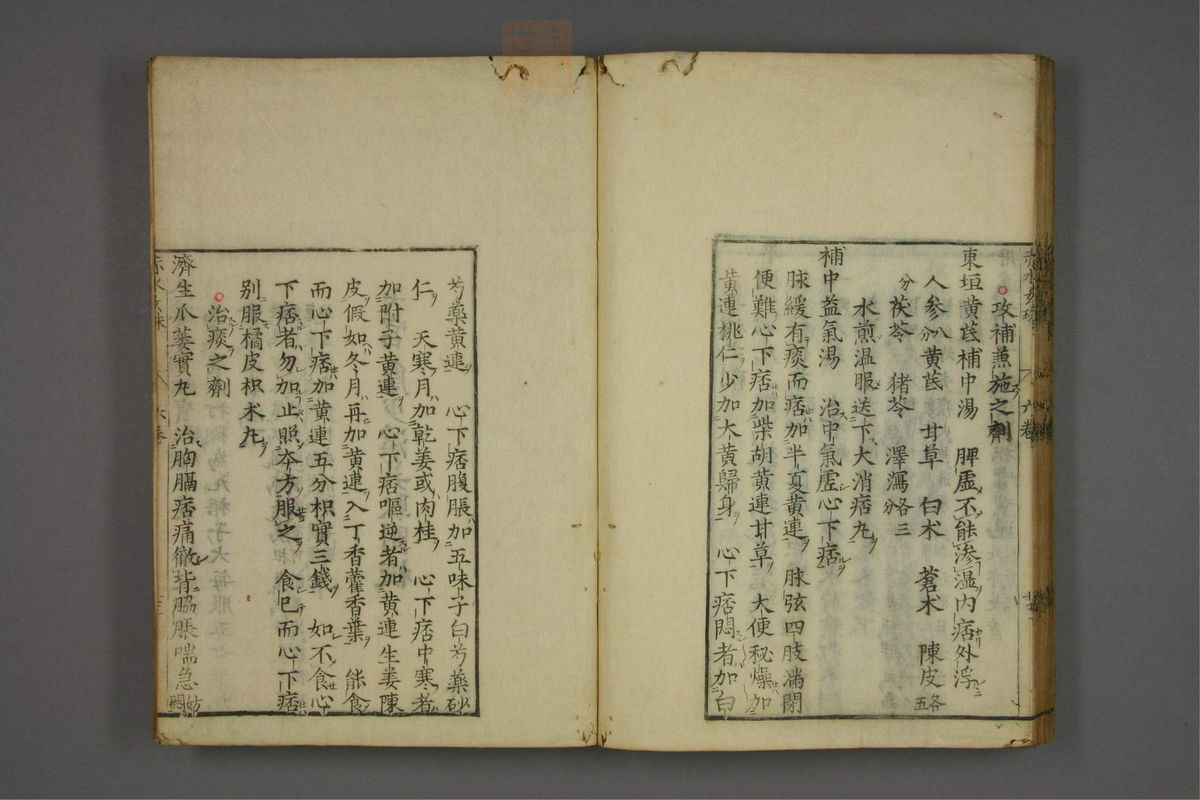 攻補兼施之劑
東垣黄芪補中湯　脾虛不能滲溫内痞外浮
人参 八分 黄芪　甘草　白朮　蒼朮　陳皮 各五
分　茯苓　猪苓　澤瀉 各三分
水煎温服送下大消痞丸
補中益氣湯　治中氣虛心下痞
脉緩有痰而痞加半夏黄連　脉弦四肢滿閉
便難心下痞加柴胡黄連甘草　大便秘燥加
黄連桃仁少加大黄歸身　心下痞悶者加白
芍藥黄連　心下痞腹脹加五味子白芍藥砂
仁　天寒月加乾姜或肉桂　心下痞中寒者
加附子黄連　心下痞嘔逆者加黄連生姜陳
皮假如冬月再加黄連入丁香藿香葉　能食
而心下痞加黄連五分枳實三錢　如不食心
下痞者勿加止照本方服之　食已而心下痞
別服橘皮枳朮丸
治痰之劑
濟生瓜蔞實丸　治胸膈痞痛徹背脇脹喘急 妨悶